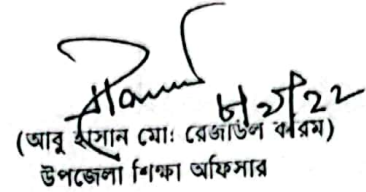 (আবু হাসান মো: রেজাউল করিম)
উপজেলা শিক্ষা অফিসার